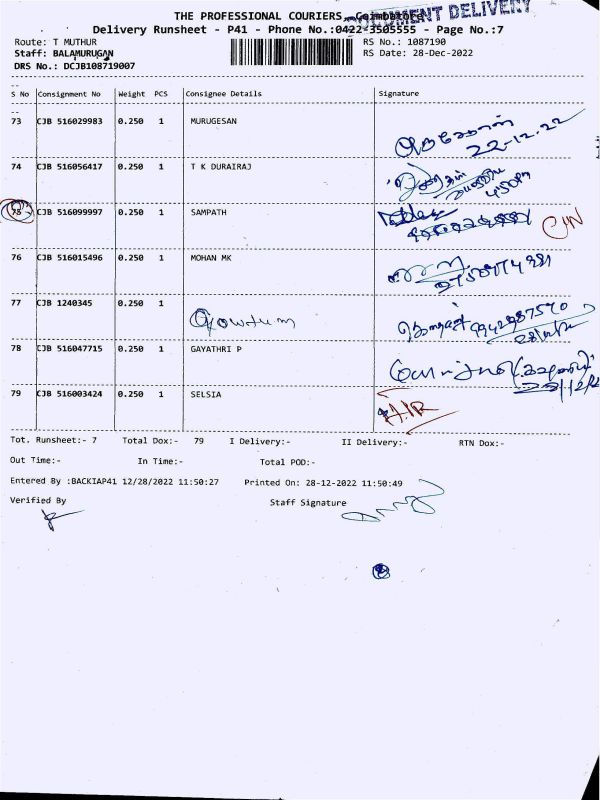 THE PROFESSIONAL COURIERS, Coimbatore
DOCUMENT DELIVERY
Delivery Runsheet - P41 - Phone No.:0422-3505555 - Page No.:7
Route: T MUTHUR RS No.: 1087190
Staff: BALAMURUGAN RS Date: 28-Dec-2022
DRS No.: DCJB108719007
S No Consignment No Weight PCS Consignee Details Signature
73 CJB 516029983 0.250 1 MURUGESAN
22-12-22
74 CJB 516056417 0.250 1 T K DURAIRAJ
75 CJB 516099997 0.250 1 SAMPATH
76 CJB 516015496 0.250 1 MOHAN MK
77 CJB 1240345 0.250 1
Gowtum
78 CJB 516047715 0.250 1 GAYATHRI P
79 CJB 516003424 0.250 1 SELSIA
Tot. Runsheet:- 7 Total Dox:- 79 I Delivery:- II Delivery:- RTN Dox:-
Out Time:- In Time:- Total POD:-
Entered By :BACKIAP41 12/28/2022 11:50:27 Printed On: 28-12-2022 11:50:49
Verified By Staff Signature